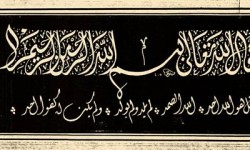 الله تعالى بسم الله الرحمن الرحيم
هو الله احد الله الصمد لم يلد ولم يولد ولم يكن له كفوا احد